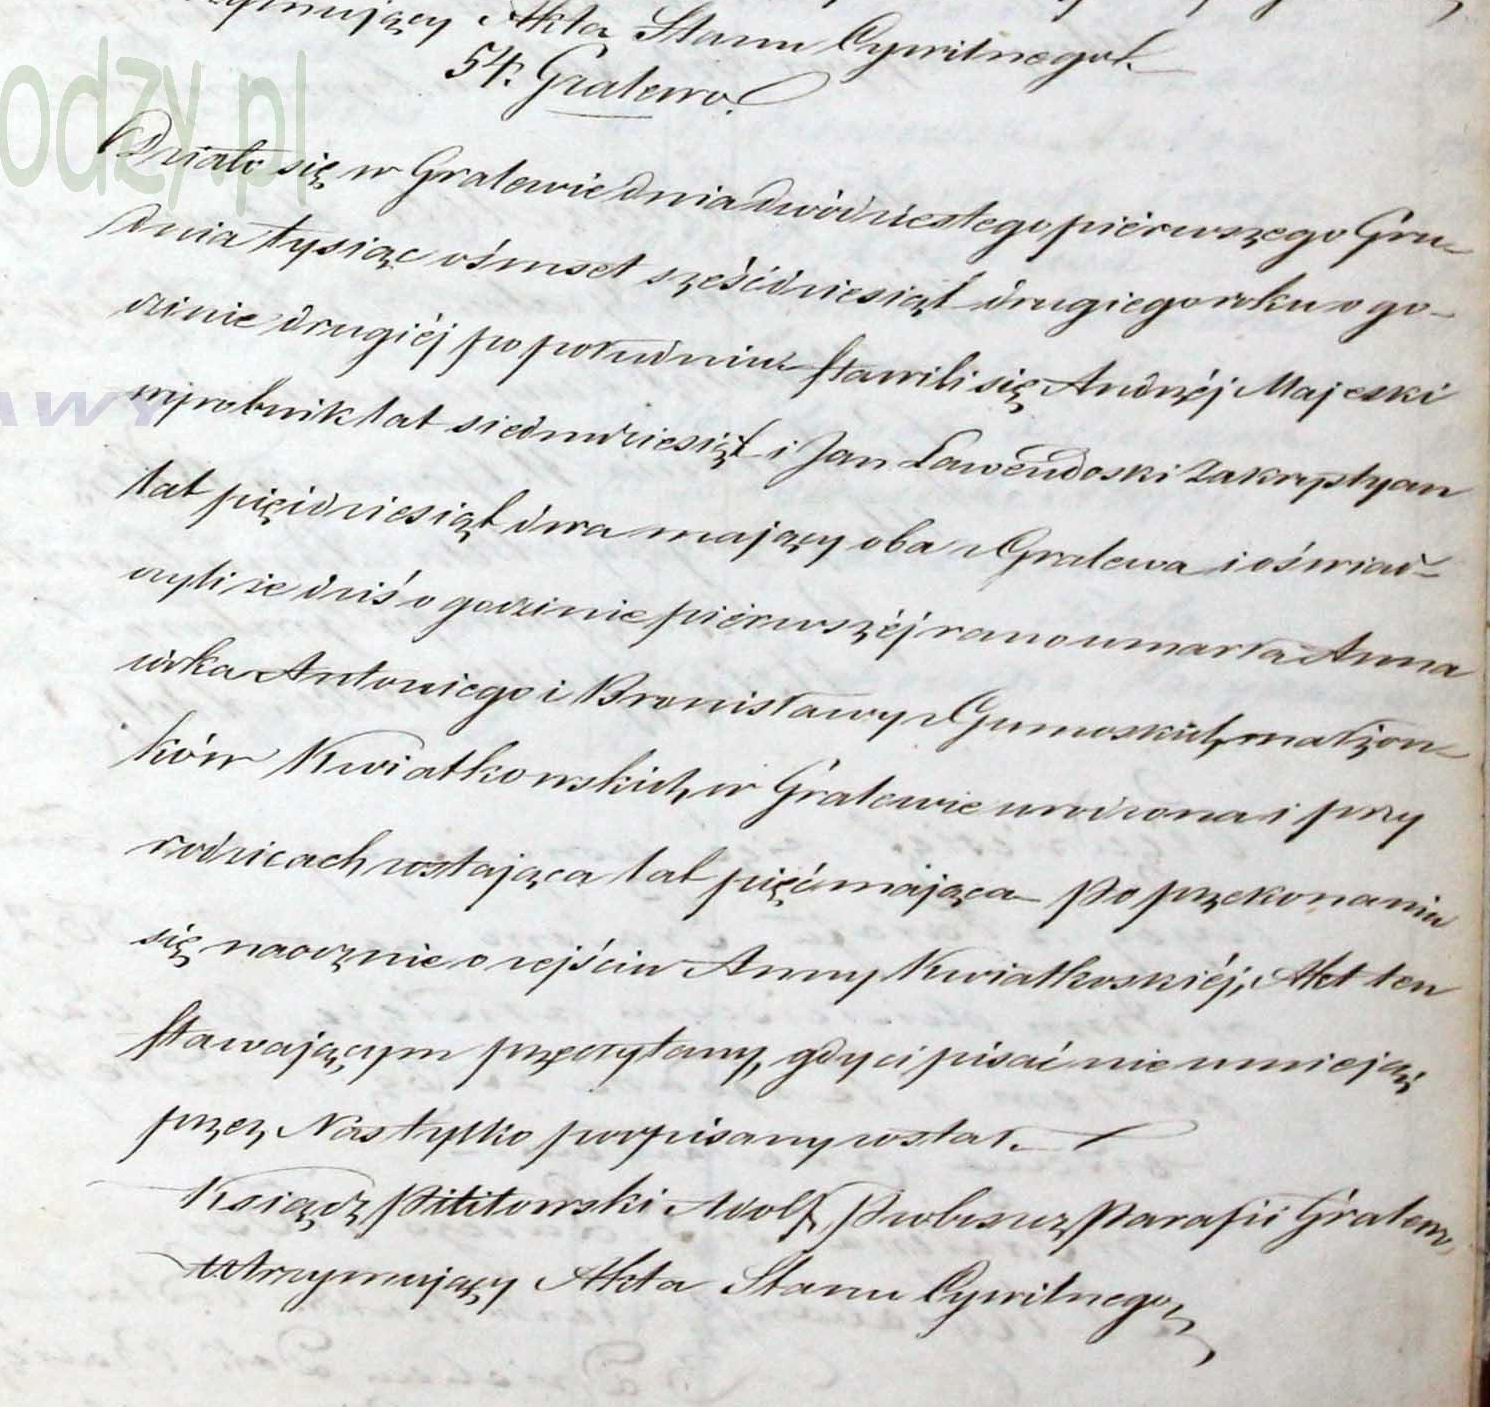 Utrzymujący Akta Stanu Cywilnego.
54. Gralewo.
Działo się w Gralewie dnia dwódziestego piérwszego Gru-
dnia tysiąc ośmset sześćdziesiąt drugiego roku o go-
dzinie drugiéj po południu. Stawili się Andrzéj Majeski
wyrobnik lat siedmdziesiąt i Jan Lawendoski Zakrystyan
lat pięćdziesiąt dwa mający oba z Gralewa i oświad-
czyli że dziś o godzinie piérwszéj rano umarła Anna
córka Antoniego i Bronisławy z Gumoskich małżon-
ków Kwiatkowskich, w Gralewie urodzona i przy
rodzicach zostająca lat pięć mająca. Po przekonaniu
się naocznie o zejściu Anny Kwiatkoskiéj, Akt ten
stawającym przeczytany, gdy ci pisać nie umieją,
przez Nas tylko podpisany został.
Ksiądz Pititowski Adolf, Proboszcz Parafii Gralewo,
Utrzymujący Akta Stanu Cywilnego,
odzy.pl
AWY